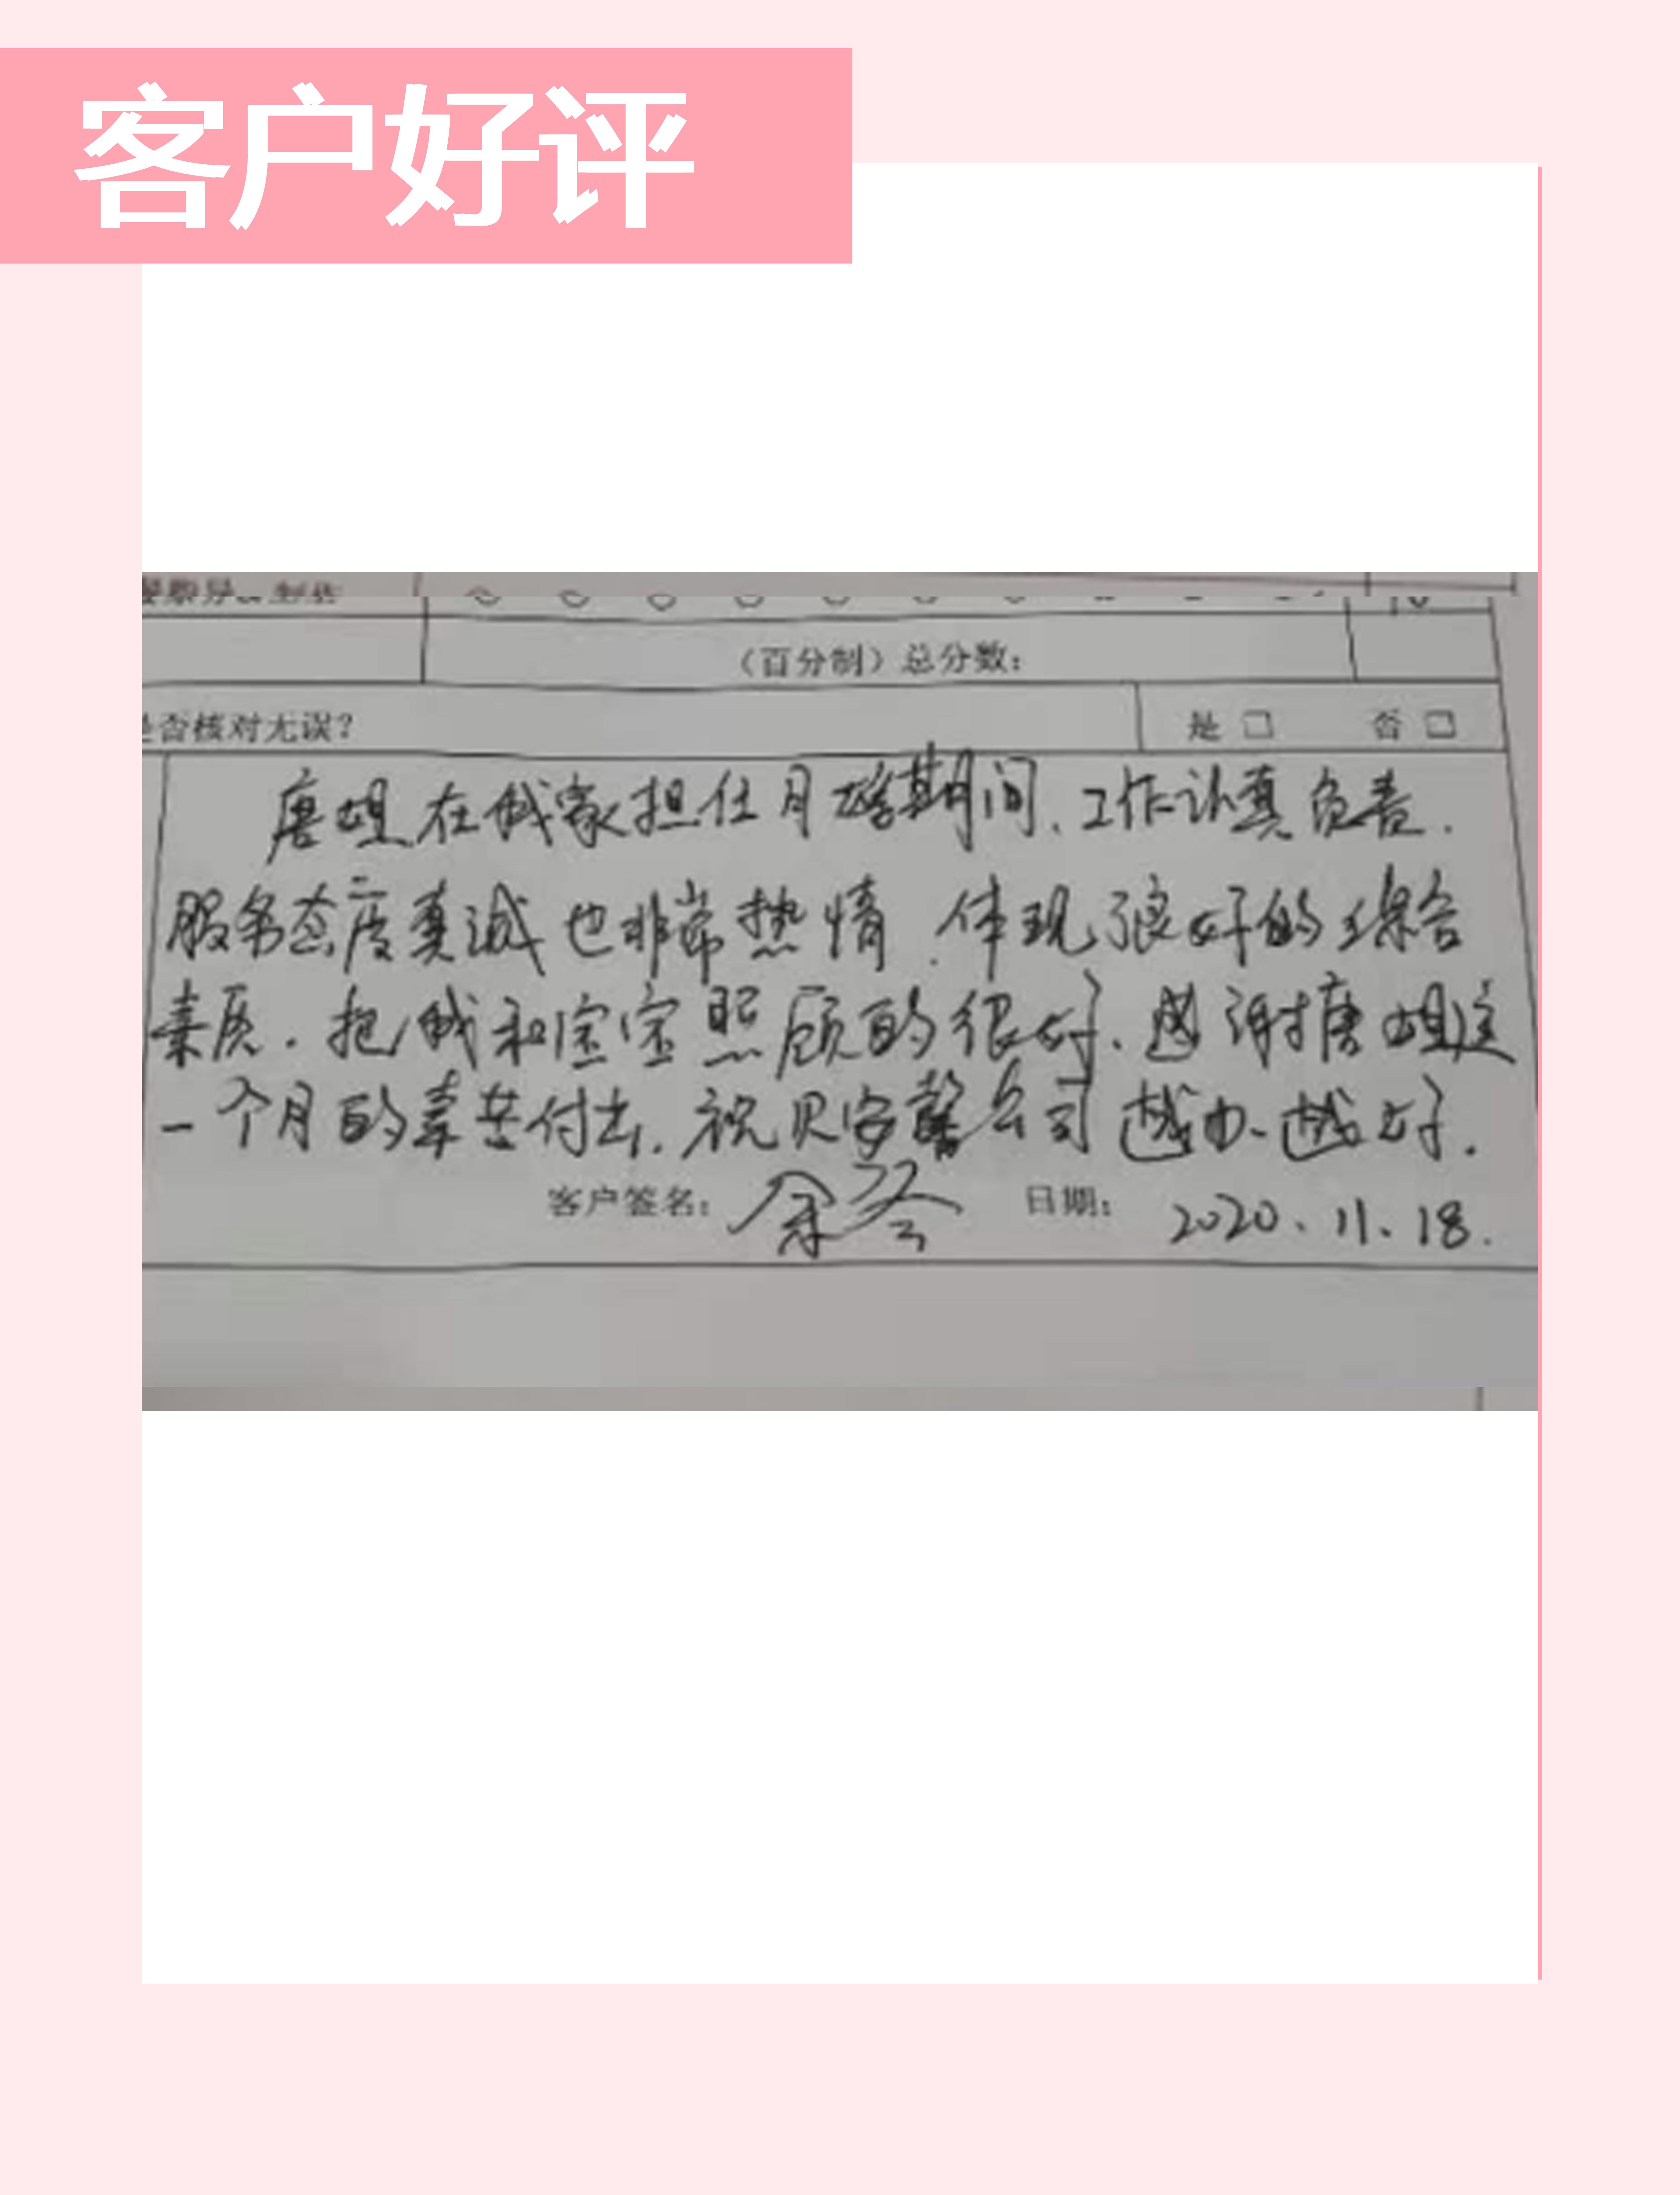 客户好评
（百分制）总分数：
是否核对无误？ 是 □ 否 □
唐姐在我家担任月嫂期间、工作认真负责.
服务态度真诚也非常热情.体现了很好的综合
素质.把我和宝宝照顾的很好、感谢唐姐这
一个月的辛苦付出.祝贝安馨公司越办越好.
客户签名： 日期： 2020.11.18.